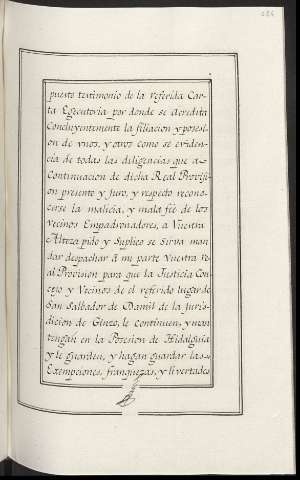 puesto testimonio de la referida Car-
ta Egecutoria por donde se acredita
Concluyentemente la filiacion y posesi-
on de unos, y otros como se eviden-
cia de todas las diligencias que a-
Continuacion de dicha Real Provisi-
on presento y Juro, y respecto recono-
cerse la malicia, y mala feé de los
vecinos Empadronadores, a Vuestra
Alteza pido y Suplico se sirva man
dar despachar á mi parte Vuestra Re
al Provision para que la Justicia Con
cejo y Vecinos de el referido lugar de
San Salbador de Damil de la Juris-
dicion de Ginzo, le continuen, y man
tengan en la Posesion de Hidalguia
y le guarden, y hagan guardar las-
Exempciones, franquezas, y livertades